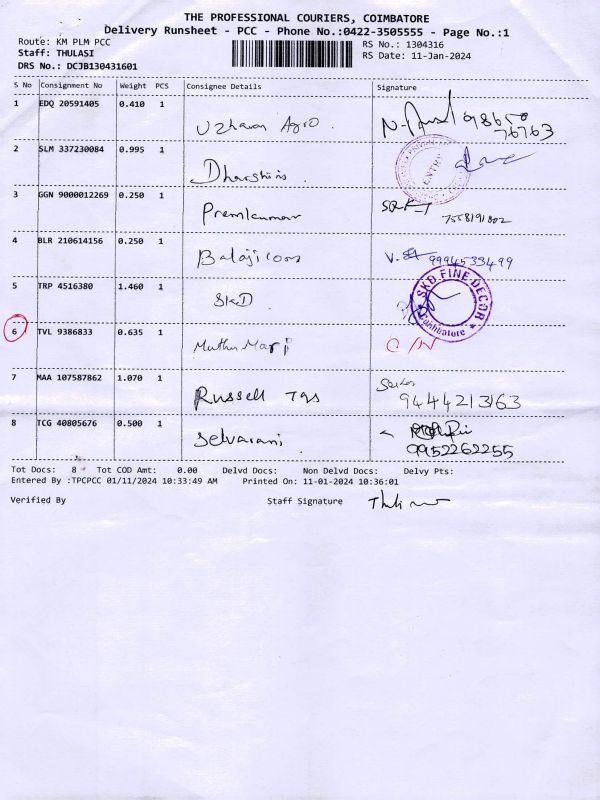 THE PROFESSIONAL COURIERS, COIMBATORE
Delivery Runsheet - PCC - Phone No.:0422-3505555 - Page No.:1
Route: KM PLM PCC
RS No.: 1304316
Staff: THULASI
RS Date: 11-Jan-2024
DRS No.: DCJB130431601
S No Consignment No Weight PCS Consignee Details Signature
1 EDQ 20591405 0.410 1
Uzhavan Agro. 98650
76763
2 SLM 337230084 0.995 1
Dharshini. ENTRY
3 GGN 9000012269 0.250 1
Premkumar 7558191002
4 BLR 210614156 0.250 1
Balaji cons V. 9994533499
5 TRP 4516380 1.460 1
SKD SKD FINE DECOR
Coimbatore
6 TVL 9386833 0.635 1
Muthu Mari C/N
7 MAA 107587862 1.070 1
Russell Tqs 9444213163
8 TCG 40805676 0.500 1
Selvarani 9952262255
Tot Docs: 8 Tot COD Amt: 0.00 Delvd Docs: Non Delvd Docs: Delvy Pts:
Entered By :TPCPCC 01/11/2024 10:33:49 AM Printed On: 11-01-2024 10:36:01
Verified By Staff Signature